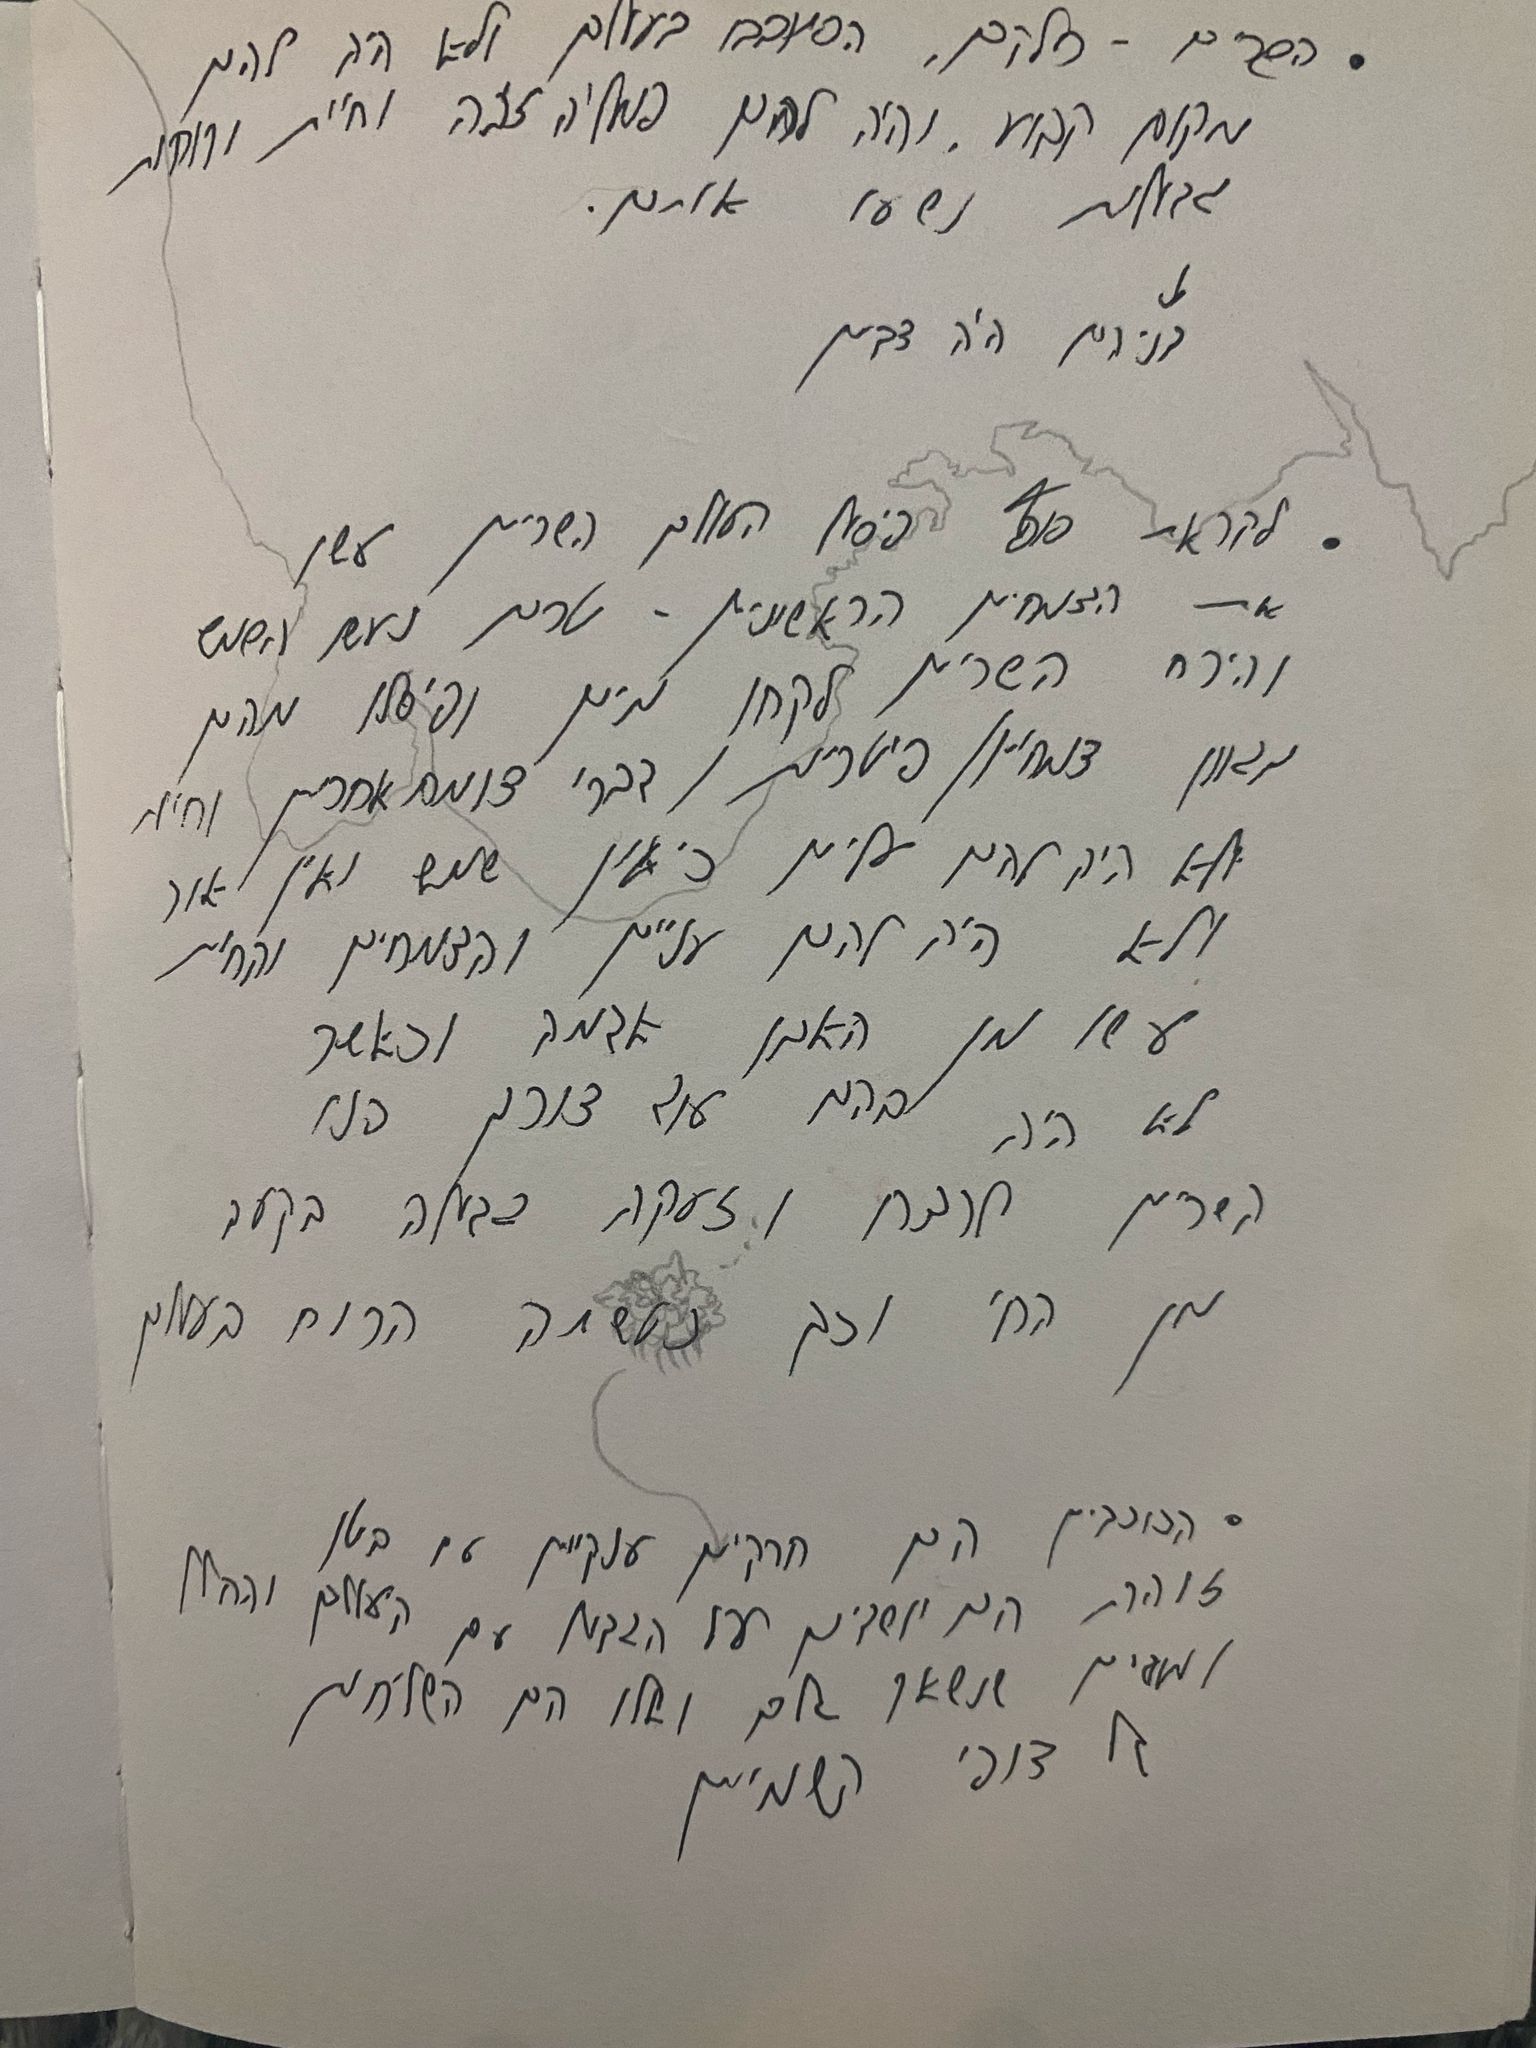 • השרים - חלקם, הסתובבו בעולם ולא היה להם
מקום קבוע. והיה להם פמליה צבה וחיית ורוחות
גדולות נשעו אותם.
↓
בניהם היה צבים
• לקראת סוף פיסול העולם השרים עשו
את הצמחים הראשונים - טרם נעשו השמש
והירח השרים לקחו מים ופיסלו מהם
מגוון צמחים, פיטריות ודברי צומח אחרים וחיות
ולא היה להם עלים כי אין שמש ואין אור
ולא היה להם עניים והצמחים והחיות
עשו מן האבן אדמה וכאשר
לא היה בהם עוד צורך פנו
השרים לרכח וזעקה גדולה בקעה
מן החי וכך נעשתה הרוח בעולם
• הכוכבים הם חרקים ענקיים עם בטן
זוהרת הם יושבים על הגבול עם העולם והחלל
ומגנים שנשאר שלם ואלו הם השליחים
של צופי השמיים